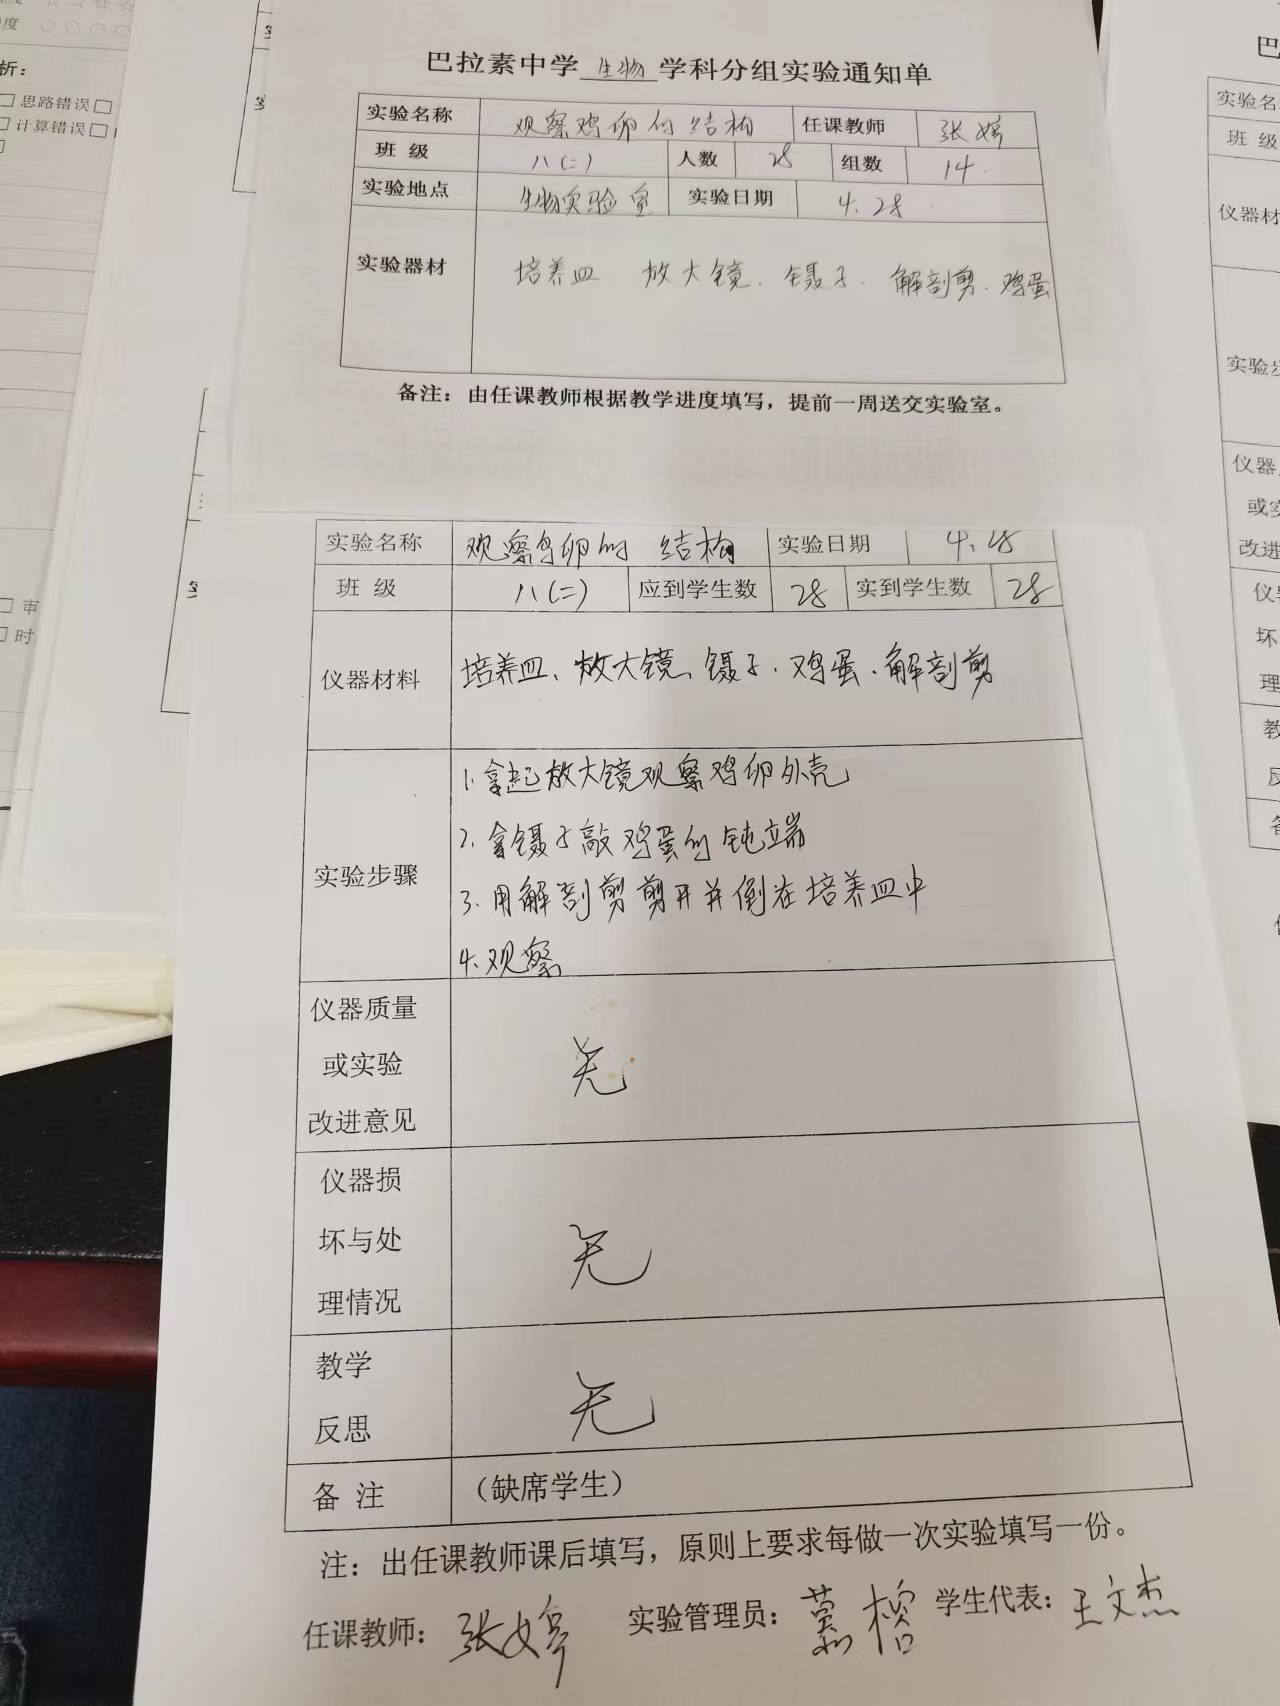 析：
思路错误
计算错误
审
时
巴拉素中学 生物 学科分组实验通知单
实验名称 观察鸡卵的结构 任课教师 张婷
班 级 八(二) 人数 28 组数 14
实验地点 生物实验室 实验日期 4.28
实验器材 培养皿 放大镜、镊子、解剖剪、鸡蛋
备注：由任课教师根据教学进度填写，提前一周送交实验室。
实验名称 观察鸟卵的结构 实验日期 4.28
班 级 八(二) 应到学生数 28 实到学生数 28
仪器材料 培养皿、放大镜、镊子、鸡蛋、解剖剪
实验步骤
1.拿起放大镜观察鸡卵外壳
2.拿镊子敲鸡蛋的钝端
3.用解剖剪剪开并倒在培养皿中
4.观察
仪器质量
或实验
改进意见
无
仪器损
坏与处
理情况
无
教学
反思
无
备 注 （缺席学生）
注：出任课教师课后填写，原则上要求每做一次实验填写一份。
任课教师：张婷 实验管理员： 学生代表：王文杰
巴
实验名
班 级
仪器材
实验步
仪器
或实
改进
坏
理
教